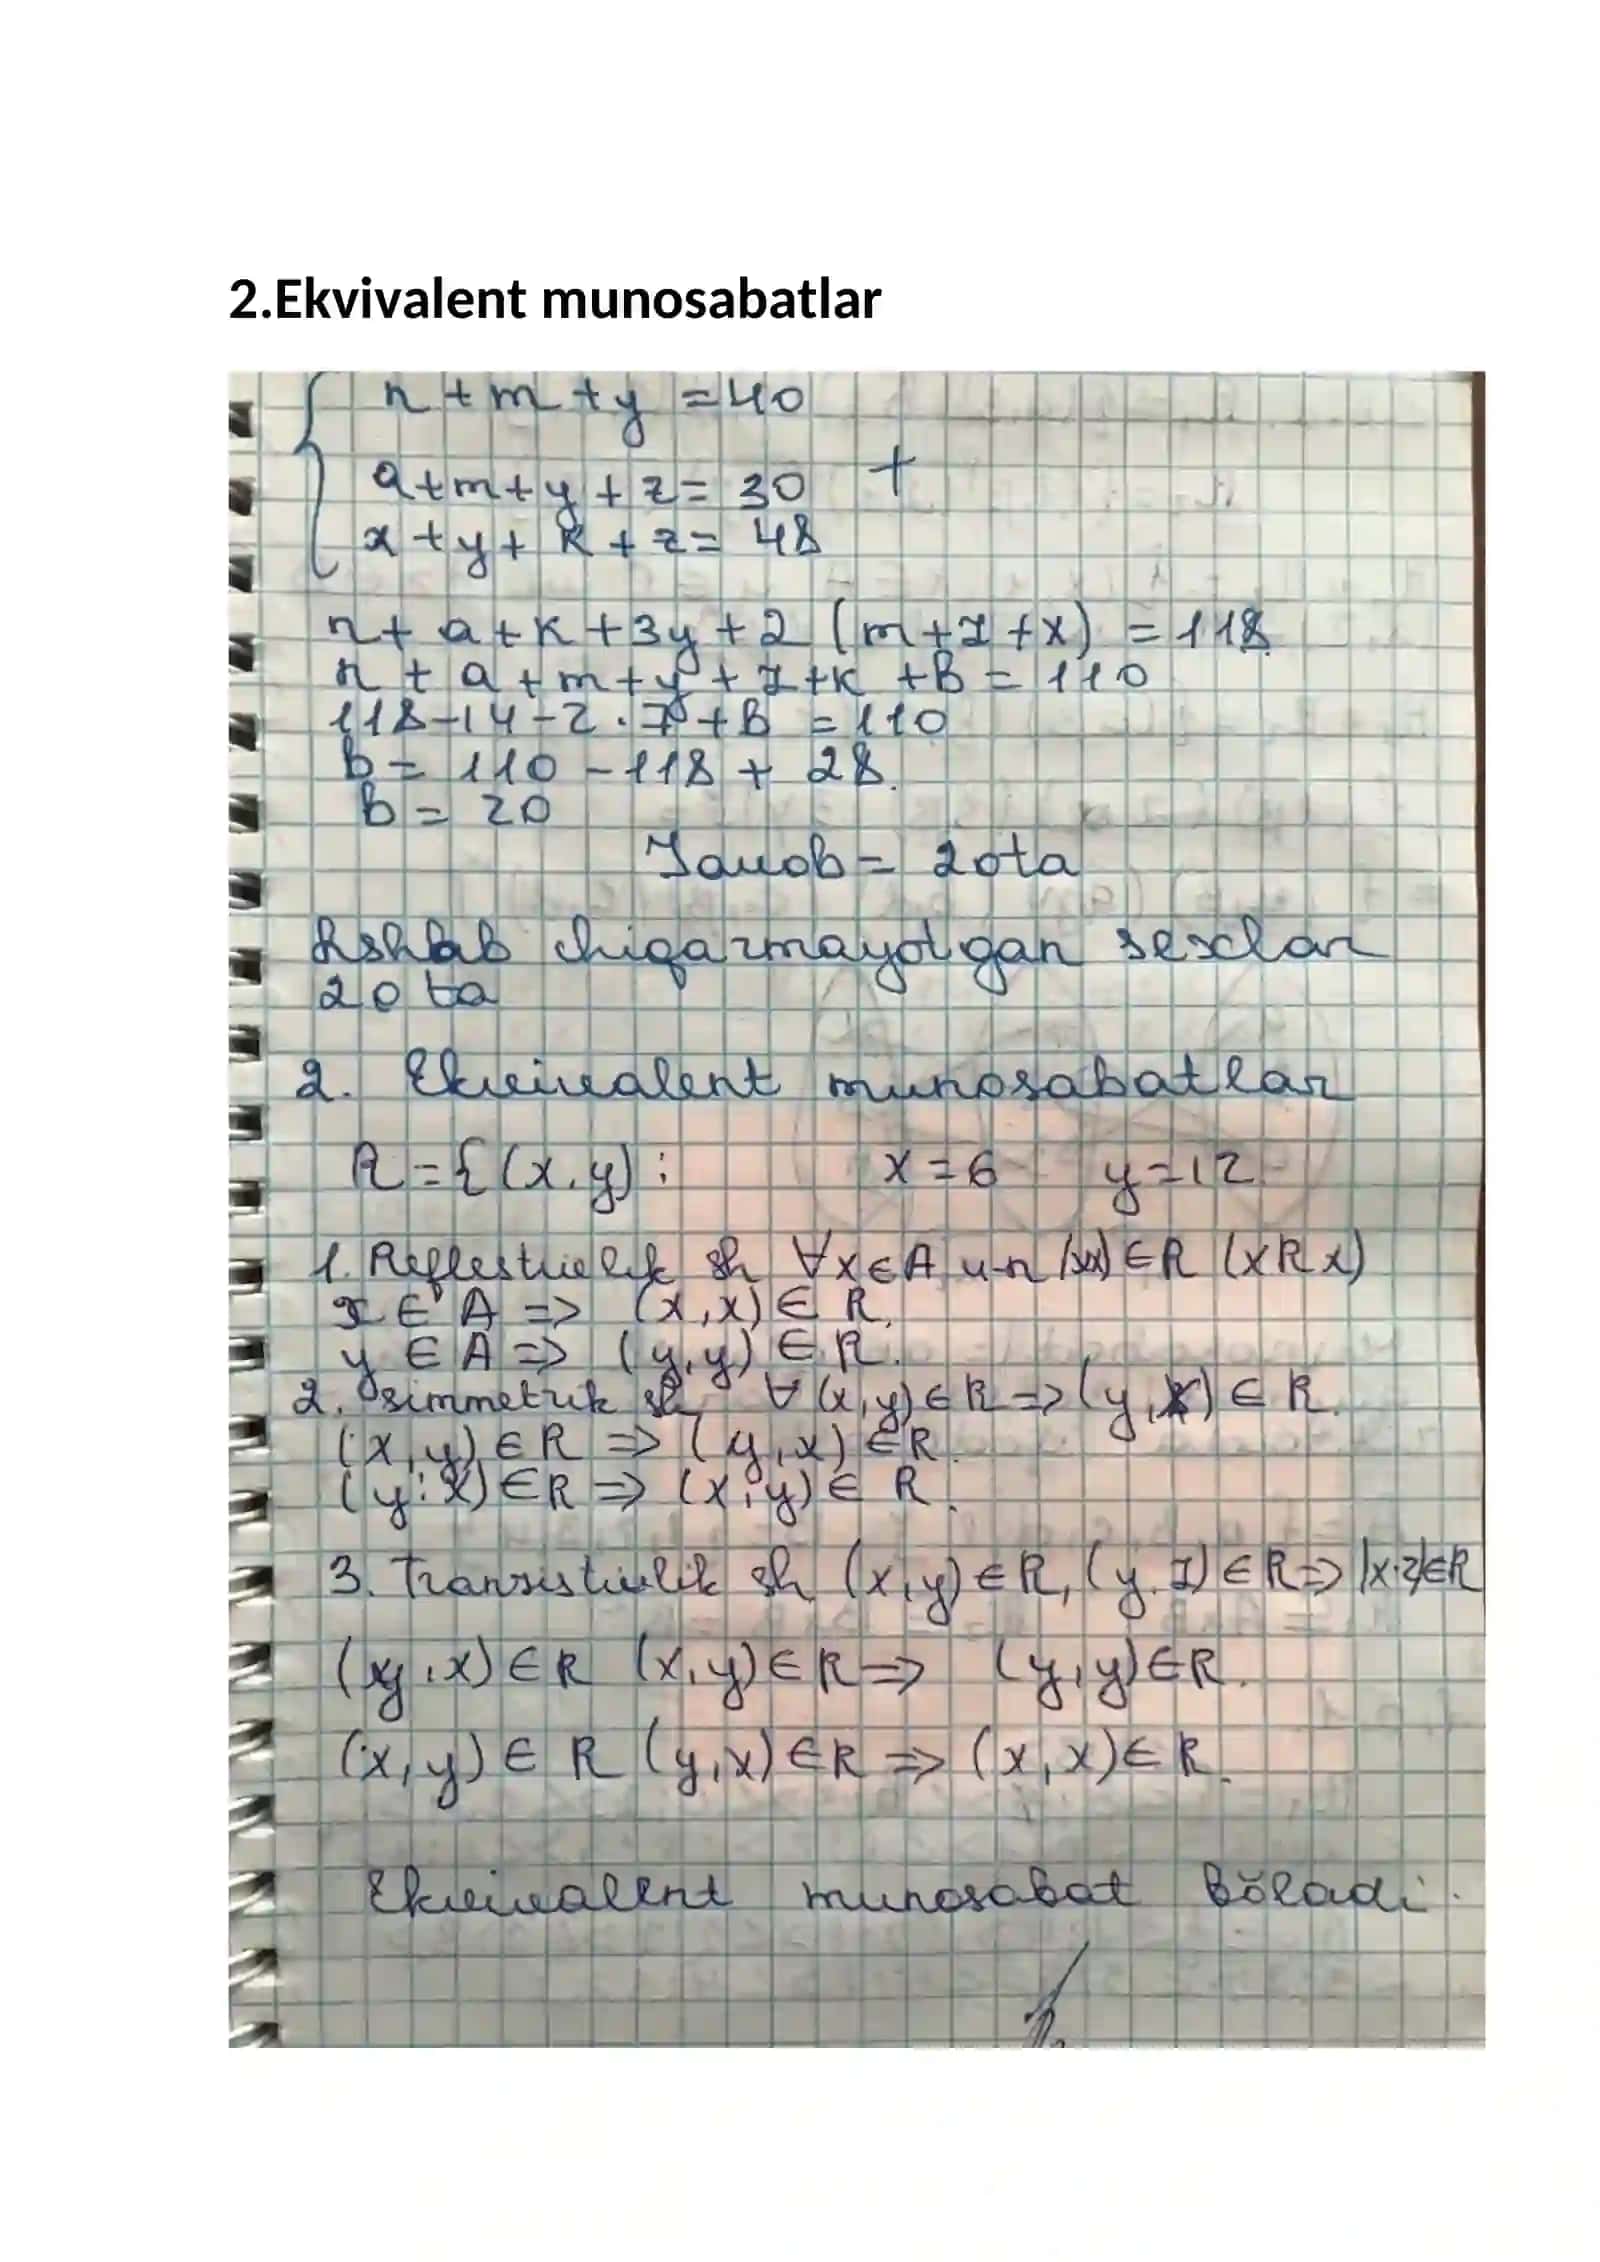 2.Ekvivalent munosabatlar
n+m+y =40
a+m+y+z= 30 +
x+y+k+z= 48
n+a+k+3y+2 (m+z+x) =118
n+a+m+y+z+k+B=110
118-14-2·7+B =110
B= 110-118+28.
B= 20
Javob= 20ta
Ishlab chiqarmayotgan sexlar
20 ta
2. Ekvivalent munosabatlar
R={(x,y): x=6 y=12
1. Reflestivlik sh ∀x∈A u-n (x,x)∈R (xRx)
x∈A => (x,x)∈R.
y∈A => (y,y)∈R.
2. simmetrik sh ∀(x,y)∈R=>(y,x)∈R.
(x,y)∈R => (y,x)∈R.
(y;x)∈R => (x;y)∈R.
3. Tranzistivlik sh (x,y)∈R, (y.z)∈R=>(x.z)∈R
(y,x)∈R (x,y)∈R=> (y,y)∈R.
(x,y)∈R (y,x)∈R=> (x,x)∈R.
Ekvivalent munosabat bŏladi.